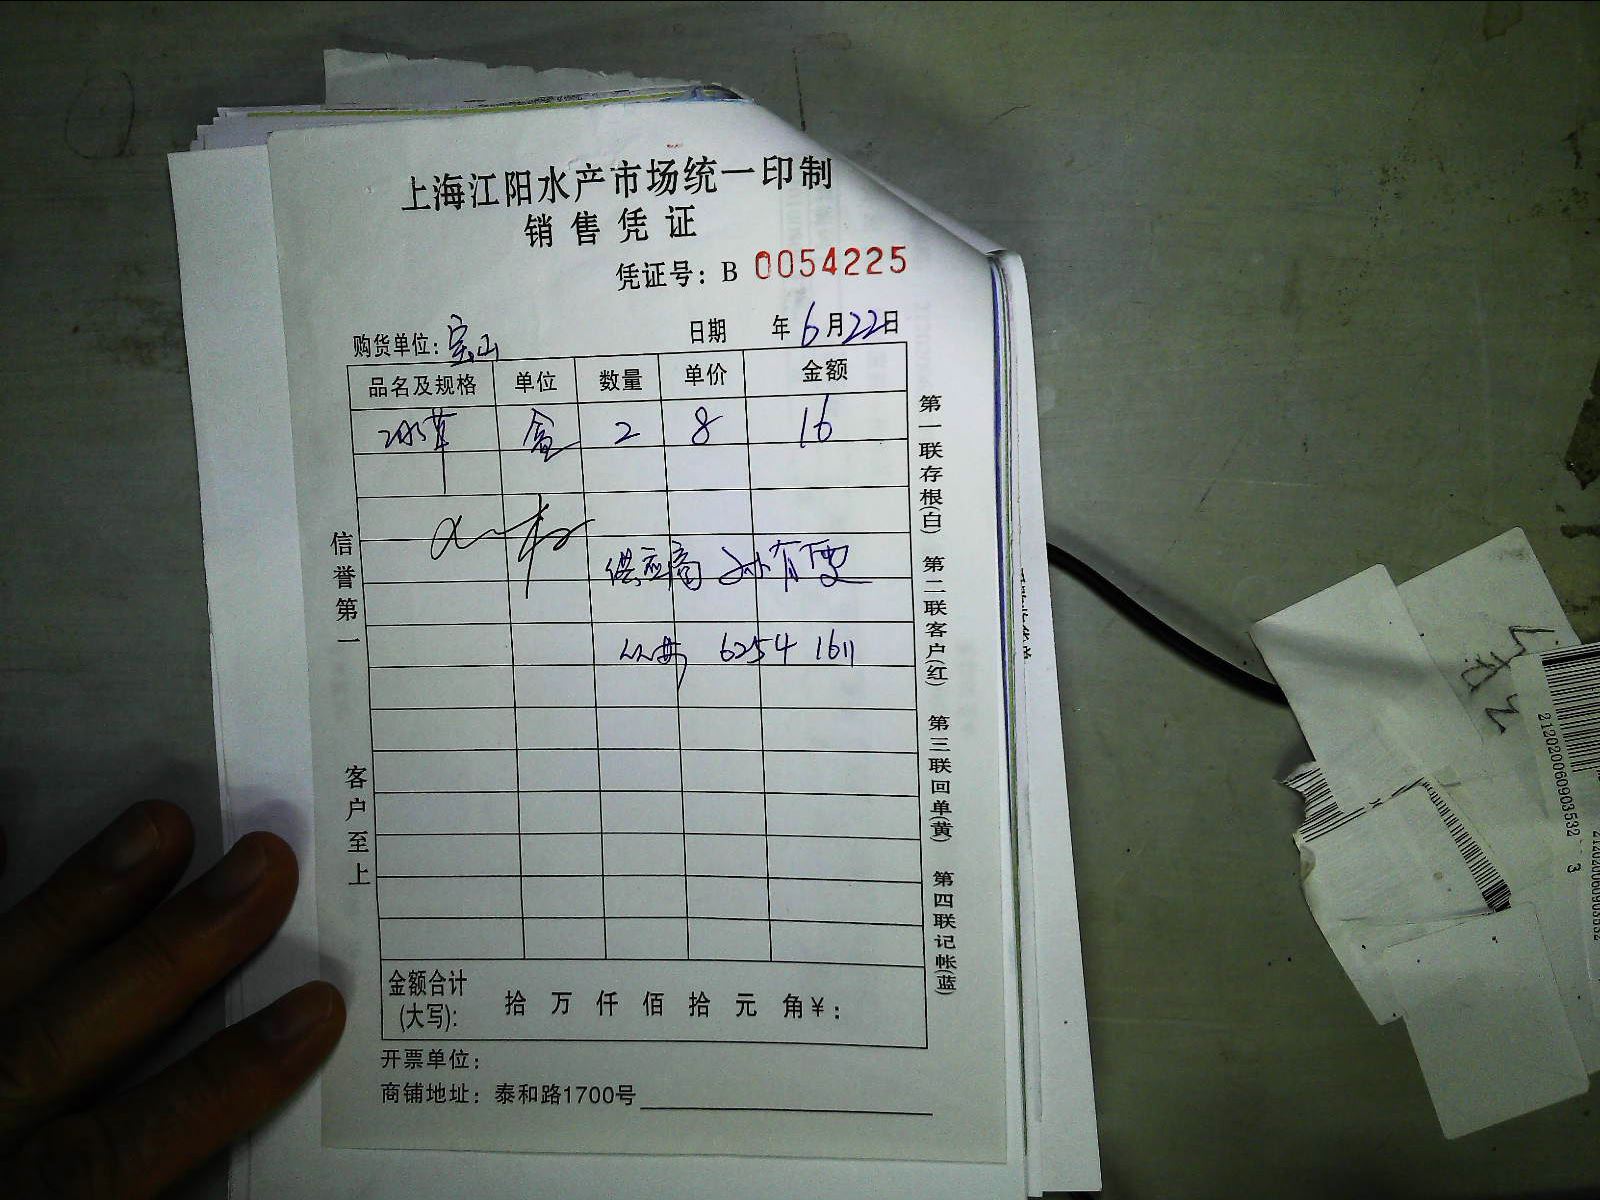 上海江阳水产市场统一印制
销售凭证
凭证号：B 0054225
购货单位：宝山 日期 年 6 月 22 日
品名及规格 单位 数量 单价 金额
盒 2 8 16
供应商 孙有更
6254 1611
金额合计(大写)： 拾 万 仟 佰 拾 元 角 ¥：
开票单位：
商铺地址：泰和路1700号
信誉第一
客户至上
第一联存根(白) 第二联客户(红) 第三联回单(黄) 第四联记帐(蓝)
212020060903532 3